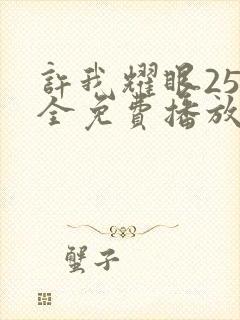 許我耀眼25
全免費播放
蟹子